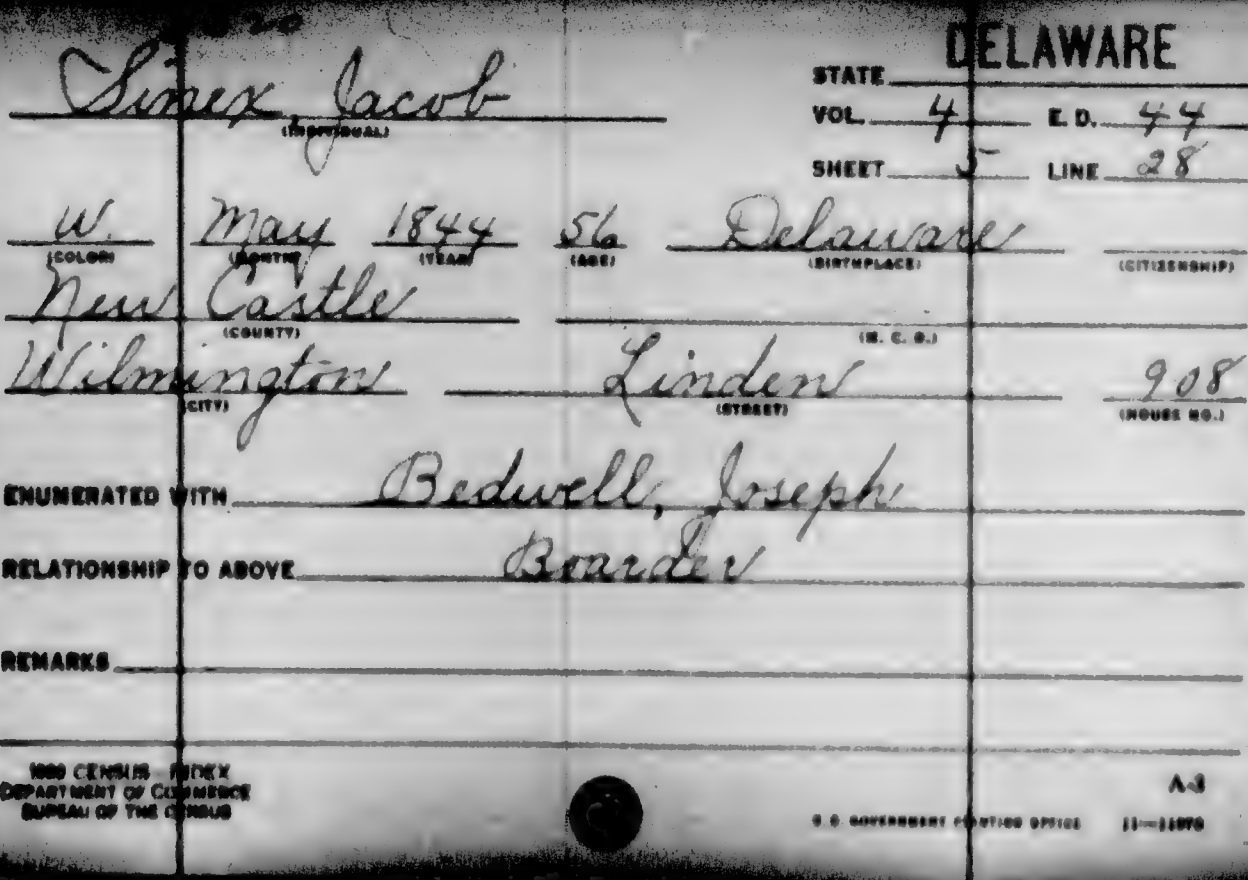 DELAWARE
Sinex, Jacob
(INDIVIDUAL)
STATE
VOL. 4 E. D. 44
SHEET 5 LINE 28
W. May 1844 56 Delaware
(COLOR) (MONTH) (YEAR) (AGE) (BIRTHPLACE) (CITIZENSHIP)
New Castle
(COUNTY) (M. C. D.)
Wilmington Linden 908
(CITY) (STREET) (HOUSE NO.)
ENUMERATED WITH Bedwell, Joseph
RELATIONSHIP TO ABOVE Boarder
REMARKS
CENSUS INDEX
DEPARTMENT OF COMMERCE
BUREAU OF THE CENSUS
A-3
U.S. GOVERNMENT PRINTING OFFICE